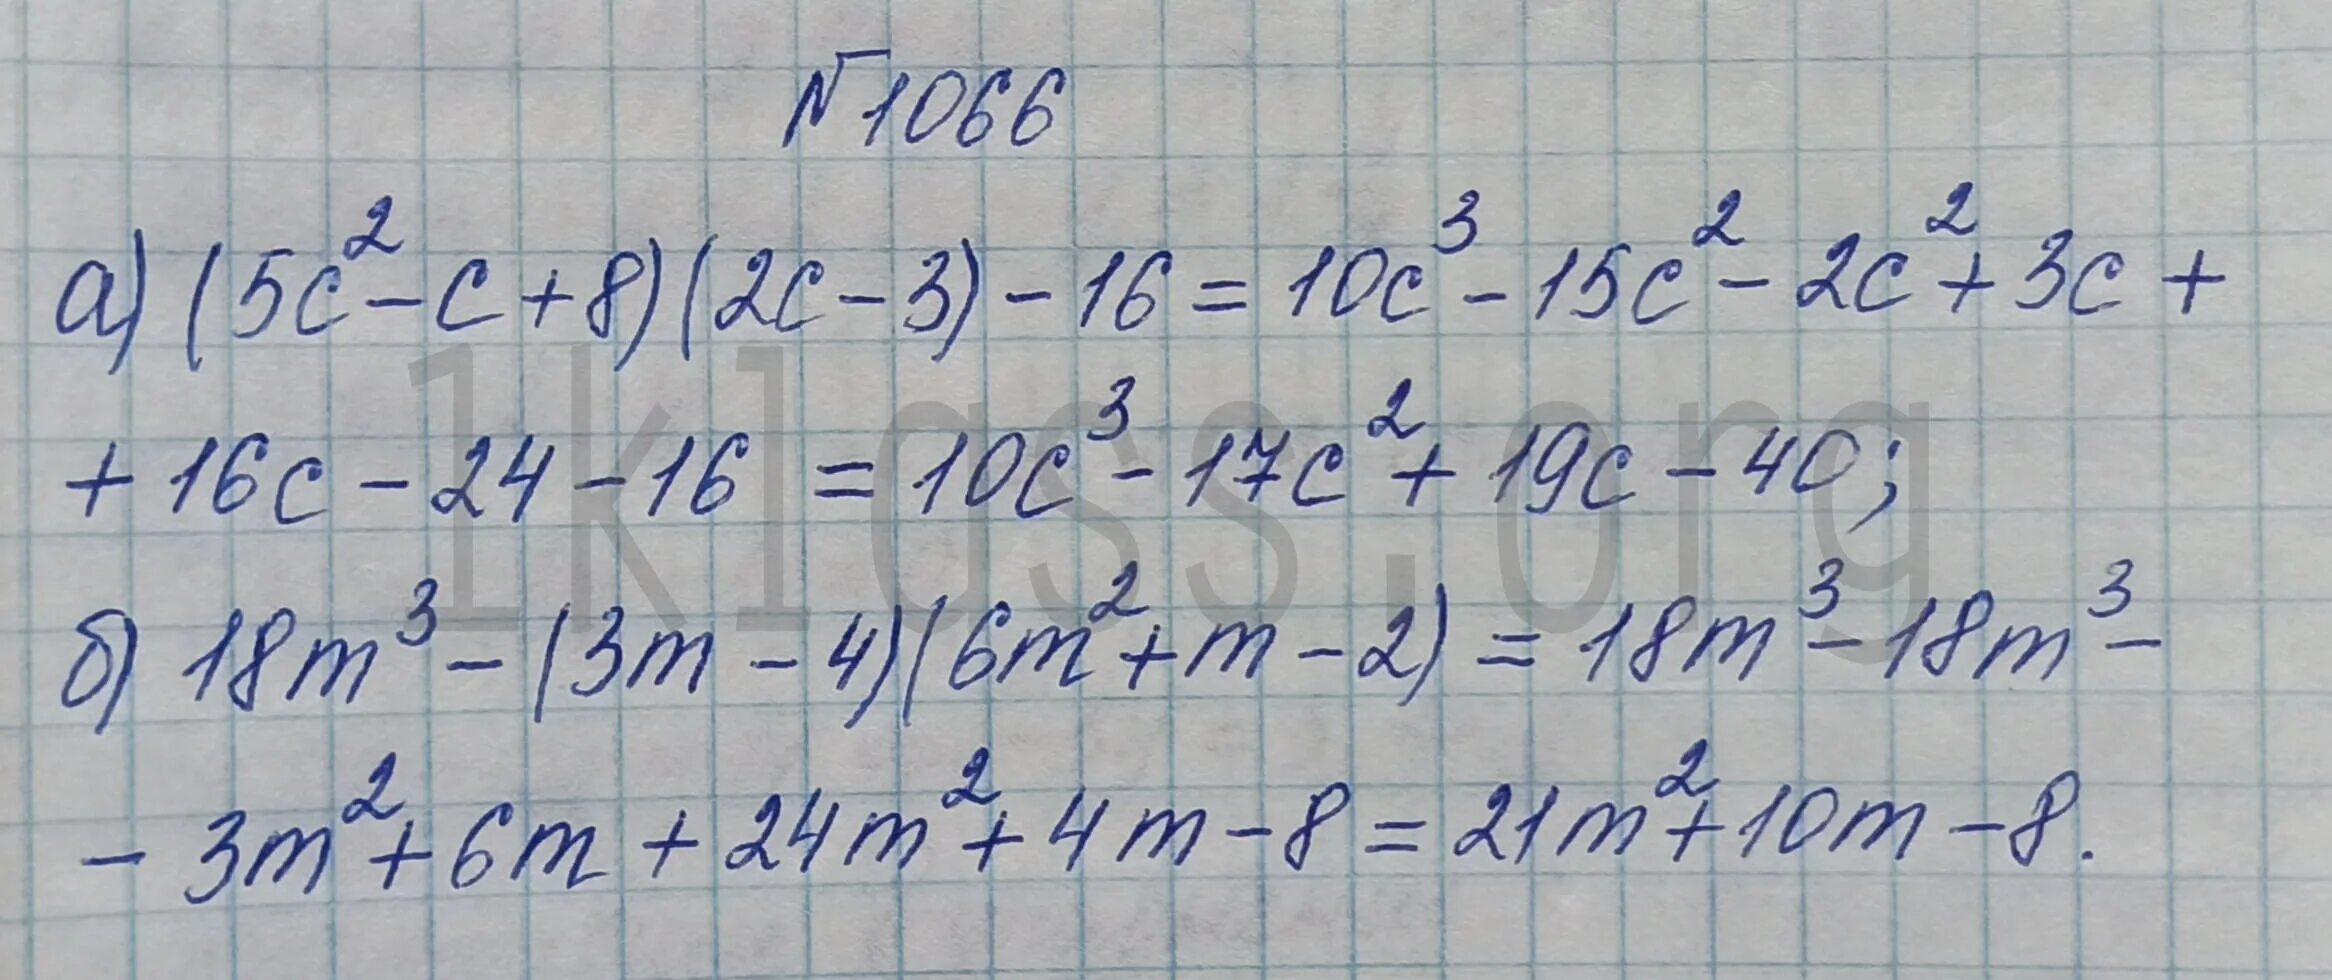 №1066
а) (5c² - c + 8)(2c - 3) - 16 = 10c³ - 15c² - 2c² + 3c +
+ 16c - 24 - 16 = 10c³ - 17c² + 19c - 40;
б) 18m³ - (3m - 4)(6m² + m - 2) = 18m³ - 18m³ -
- 3m² + 6m + 24m² + 4m - 8 = 21m² + 10m - 8.
1klass.org